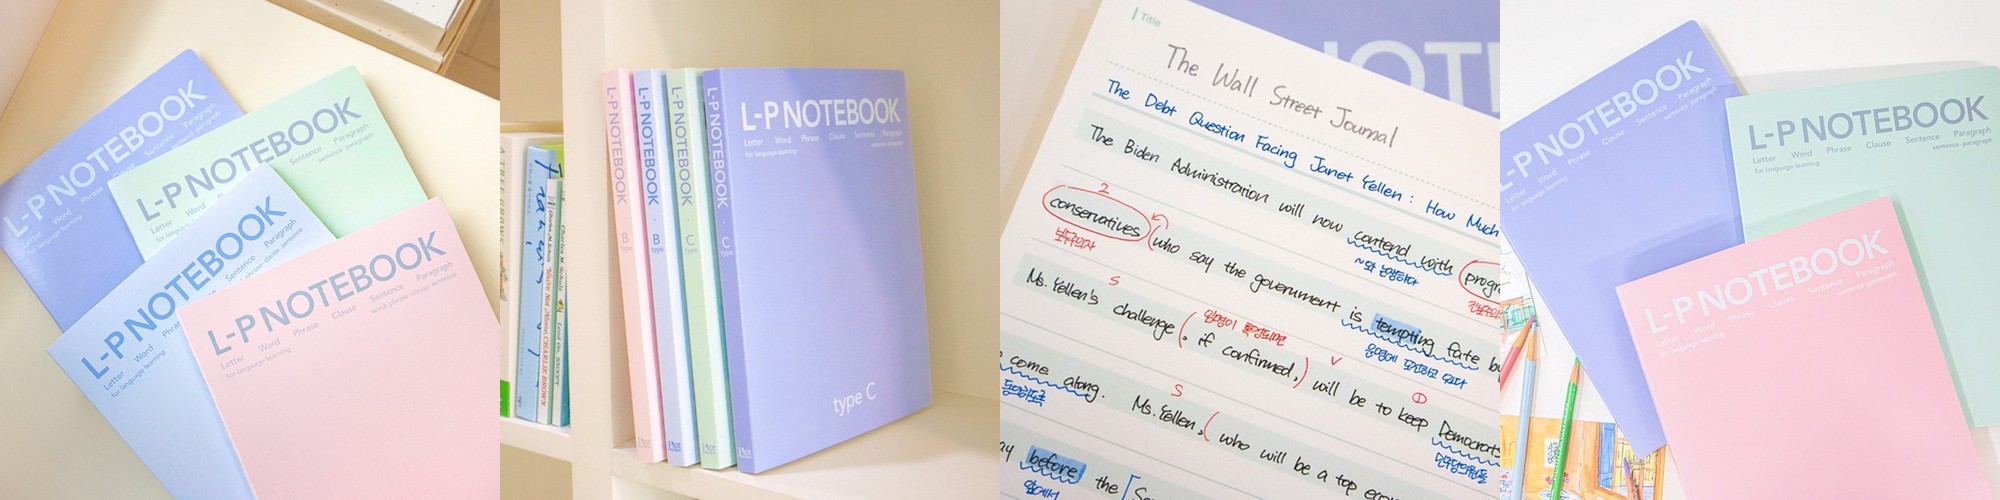 L-P NOTEBOOK
Letter Word Phrase Clause Sentence Paragraph
sentence·paragraph
L-P NOTEBOOK
Letter Word
Sentence
sentence·paragraph
for language
L-P NOTEBOOK
Letter Word Phrase Sentence Paragraph
phrase·clause·sentence
for language learning
L-P NOTEBOOK
Letter Word Phrase Clause Sentence Paragraph
word·phrase·clause·sentence
for language learning
CHARLIE BROWN
L-P NOTEBOOK · B type
L-P NOTEBOOK · B type
L-P NOTEBOOK · C type
L-P NOTEBOOK · C type
L-P NOTEBOOK
Letter Word Phrase Clause Sentence Paragraph
for language learning
sentence·paragraph
type C
Title
The Wall Street Journal
The Debt Question Facing Janet Yellen : How Much
The Biden Administration will now contend with
~와 논쟁하다
2
conservatives (who say the government is tempting fate
보수주의자
운명에 도전하고 있다
S
임명이 확정되면
V
①
Ms. Yellen's challenge (, if confirmed,) will be to keep Democrats
민주당의원들
S
come along. Ms. Yellen, (who will be a top
동의하도록
before the
앞에서
NOTEBOOK
Phrase Clause Sentence Paragraph
sentence·paragraph
for language learning
L-P NOTEBOOK
Letter Word Phrase Clause Sentence Paragraph
sentence·paragraph
for language learning
L-P NOTEBOOK
Letter Word Phrase Clause Sentence Paragraph
sentence·paragraph
for language learning